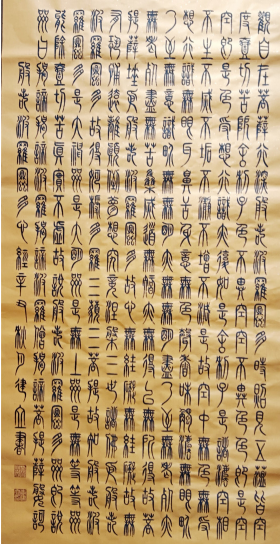 觀自在菩薩行深般若波羅蜜多時照見五蘊皆空
度一切苦厄舍利子色不異空空不異色色即是空
空即是色受想行識亦復如是舍利子是諸法空相
不生不滅不垢不淨不增不減是故空中無色無受
想行識無眼耳鼻舌身意無色聲香味觸法無眼界
乃至無意識界無無明亦無無明盡乃至無老死亦
無老死盡無苦集滅道無智亦無得以無所得故菩
提薩埵依般若波羅蜜多故心無罣礙無罣礙故無
有恐怖遠離顛倒夢想究竟涅槃三世諸佛依般若
波羅蜜多故得阿耨多羅三藐三菩提故知般若
波羅蜜多是大神咒是大明咒是無上咒是無等等咒
能除一切苦真實不虛故說般若波羅蜜多咒即說
咒曰揭諦揭諦波羅揭諦波羅僧揭諦菩提薩婆訶
般若波羅蜜多心經辛丑月律立書